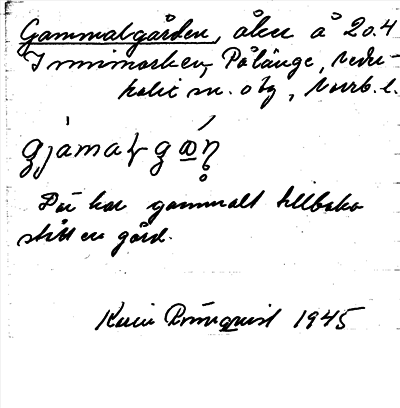 Gammalgården, åker å 20.4
Innimarken, Pålänge, Neder-
kalix sn. o tg, Norrb. l.
gjámaɫgα̲̊ṇ
Där har gammalt tillbaka
stått en gård.
Karin Rönnquist 1945